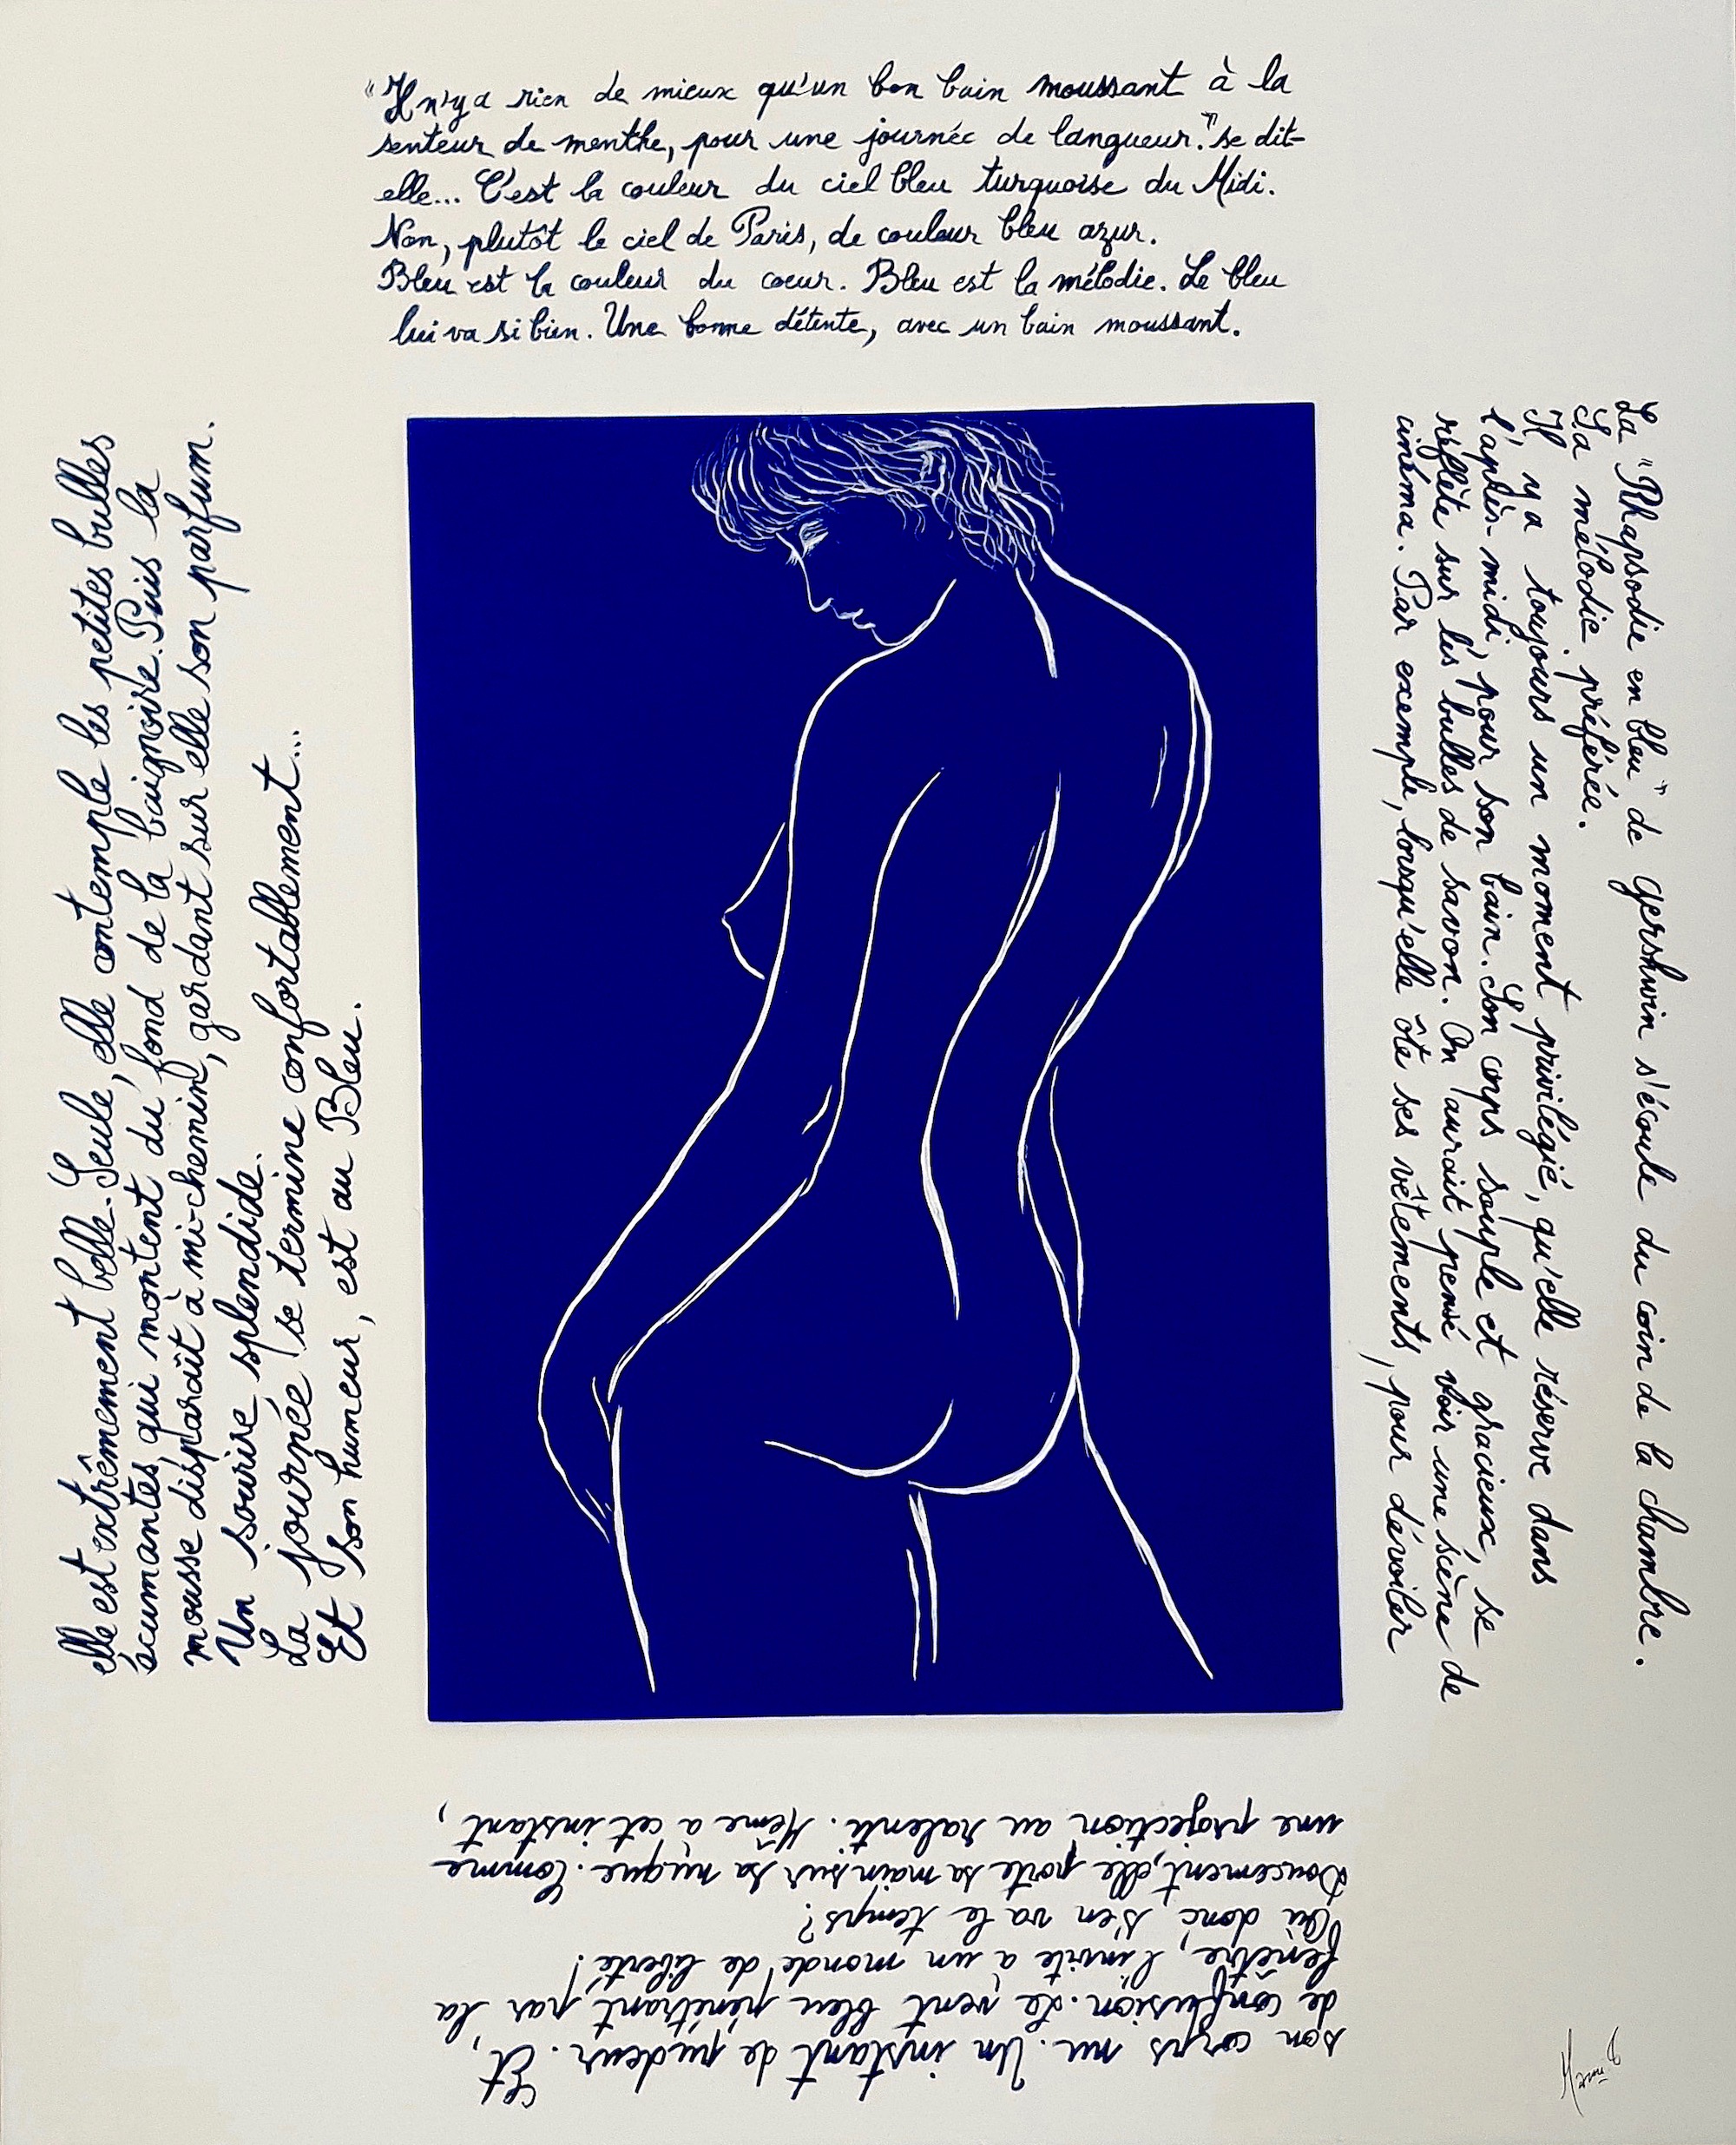 "Il n'y a rien de mieux qu'un bon bain moussant à la
senteur de menthe, pour une journée de langueur." se dit-
elle... C'est la couleur du ciel bleu turquoise du Midi.
Non, plutôt le ciel de Paris, de couleur bleu azur.
Bleu est la couleur du coeur. Bleu est la mélodie. Le bleu
lui va si bien. Une bonne détente, avec un bain moussant.
La "Rhapsodie en bleu" de gershwin s'écoule du coin de la chambre.
Sa mélodie préférée.
Il y a toujours un moment privilégié, qu'elle réserve dans
l'après-midi, pour son bain. Son corps souple et gracieux, se
reflète sur les bulles de savon. On aurait pensé voir une scène de
cinéma. Par exemple, lorsqu'elle ôte ses vêtements, pour dévoiler
son corps nu. Un instant de pudeur. Et,
de confusion. Le vent bleu pénétrant par la
fenêtre, l'invite à un monde de liberté!
Où donc, s'en va le temps?
Doucement, elle porte sa main sur sa nuque. Comme
une projection au ralenti. Même à cet instant,
elle est extrêmement belle. Seule, elle contemple les petites bulles
écumantes, qui montent du fond de la baignoire. Puis la
mousse disparaît à mi-chemin, gardant sur elle son parfum.
Un sourire splendide.
La journée se termine confortablement...
Et son humeur, est au Bleu.